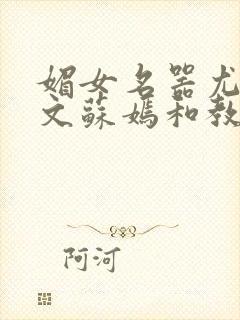 媚女名器尤
文蘇媽和教
阿河